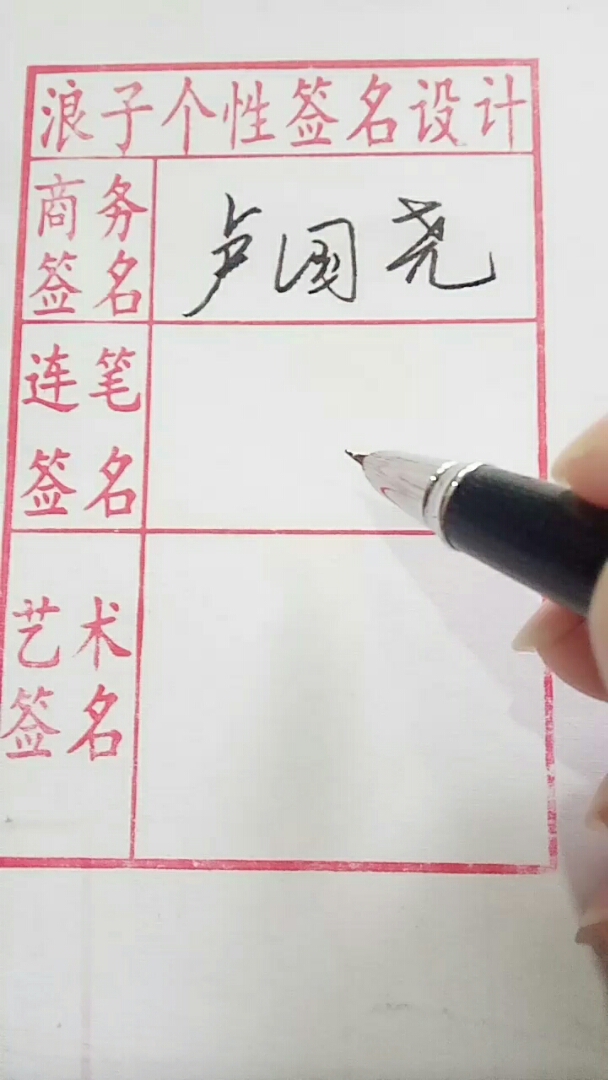 浪子个性签名设计
商务
签名
卢国尧
连笔
签名
艺术
签名